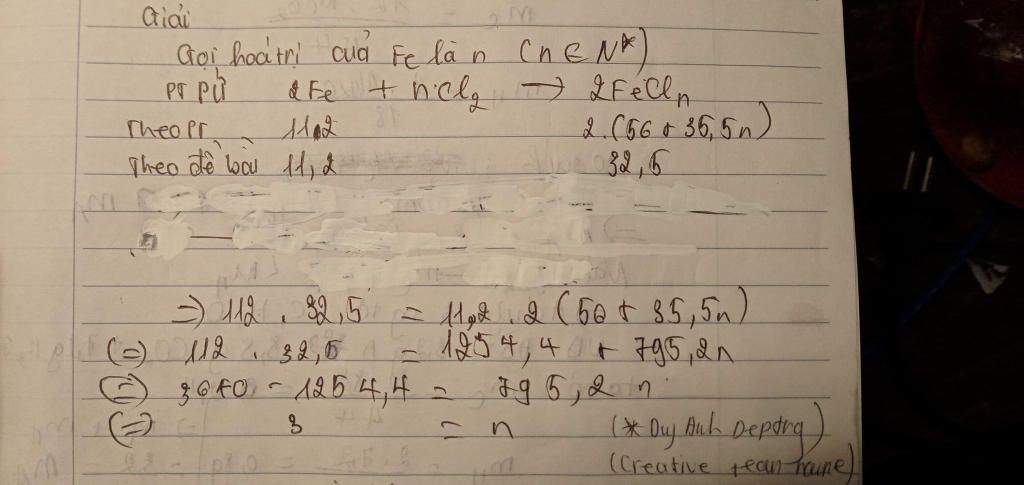 Giải
Gọi hoá trị cuả Fe là n (n ∈ N*)
PT PƯ 2Fe + n.Cl₂ → 2FeClₙ
Theo PT 112 2.(56 + 35,5n)
Theo đề bài 11,2 32,5
=> 112 . 32,5 = 11,2 . 2 (56 + 35,5n)
(=) 112 . 32,5 = 1254,4 + 795,2n
(=) 3640 - 1254,4 = 795,2 n
(=) 3 = n (* Duy Anh Deptrg)
(Creative team name)